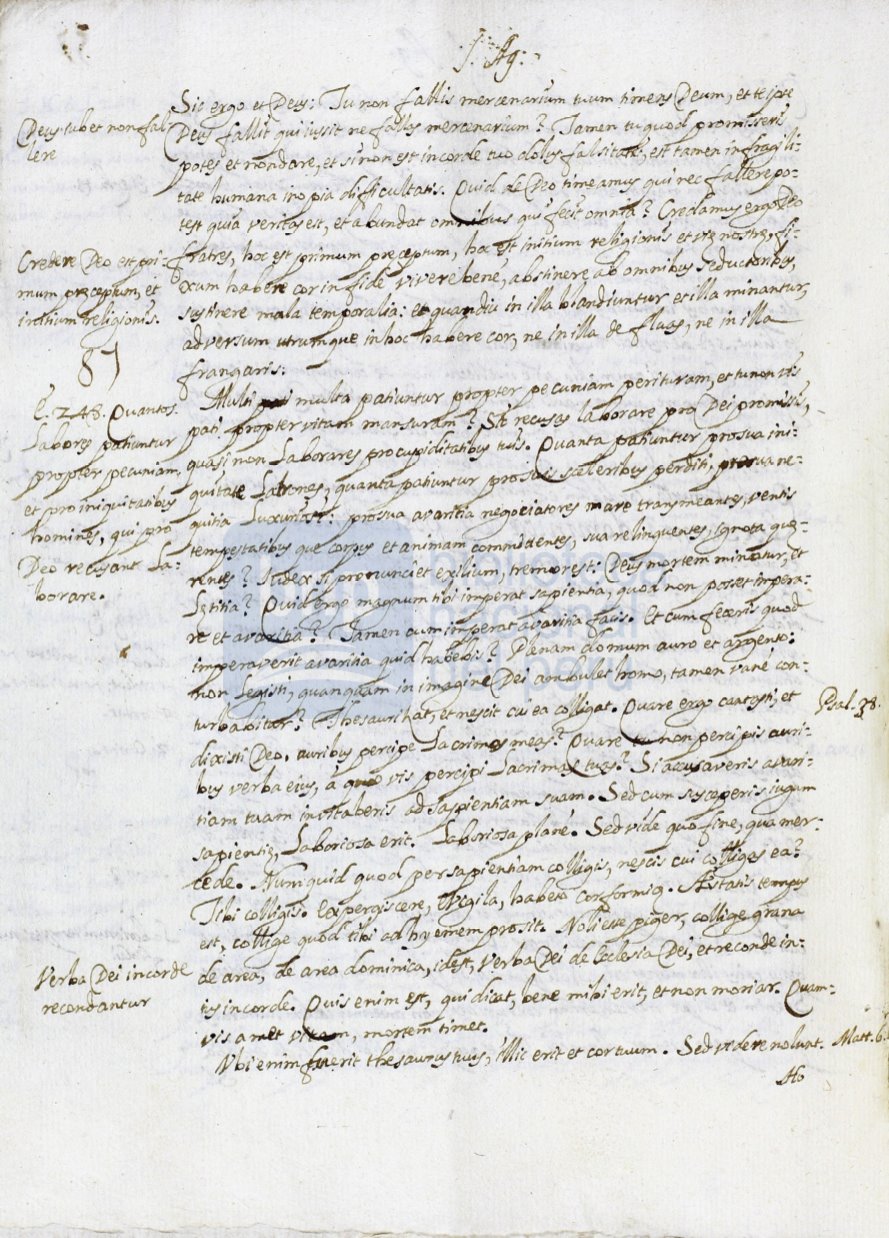 S. Ag.
Deus iubet non fal-
lere
Sic ergo et Deus: Tu non fallis mercenarium tuum timens Deum, et te ipse
Deus fallit qui iussit ne fallas mercenarium? Tamen tu quod promisseris
potes et non dare, et si non est in corde tuo dolus falsitatis, est tamen in fragili-
tate humana inopia difficultatis. Quid de Deo timeamus qui nec fallere po-
test quia veritas est, et abundat omnibus qui fecit omnia? Credamus ergo Deo
Credere Deo est pri-
mum præceptum, et
initium religionis.
fratres, hoc est primum præceptum, hoc est initium religionis et vitæ nostræ, fi-
xum habere cor in fide vivere bene, abstinere ab omnibus seductoribus,
sustinere mala temporalia: et quamdiu in illa blandiuntur et illa minantur,
adversum utrumque in hoc habere cor, ne in illa de fluas, ne in illa
frangaris:
87
E. 248. Quantos
Labores patiuntur
propter pecuniam,
et pro iniquitatibus
homines, qui pro
Deo recusant La-
borare.
Multi multa patiuntur propter pecuniam perituram, et tu non vis
pati propter vitam mansuram? Sic recusas laborare pro Dei promissis,
quasi non Labores pro cupiditatibus tuis. Quanta patiuntur pro sua ini-
quitate Latrones, quanta patiuntur pro suis sceleribus perditi, pro sua ne-
quitia Luxuriosi: pro sua avaritia negociatores mare transmeantes, ventis
tempestatibus que corpus et animam commidentes, sua relinquentes, ignota quæ-
rentes? Iudex si pronunciet exilium, tremor est: Deus mortem minatur, et
Lætitia? Quid ergo magnum tibi imperat sapientia, quod non posset impera-
re et avaritia? Tamen cum imperat avaritia facis. Et cum feceris quod
imperaverit avaritia quid habebis? Plenam domum auro et argento:
non Legisti, quanquam in imagine Dei ambulet homo, tamen vane con-
turbabitur? Thesaurizat, et nescit cui ea colligat. Quare ergo cantasti, et
Psal. 38.
dixisti Deo, auribus percipe Lacrimas meas? Quare non percipis auri-
bus verba eius, a quo vis percipi Lacrimas tuas? Si accusaveris avari-
tiam tuam incitaberis ad sapientiam suam. Sed cum susceperis iugum
sapientiæ, Laboriosa erit. Laboriosa plane. Sed vide quo fine, qua mer-
cede. Nunquid quod per sapientiam colligis, nescis cui colliges ea?
Tibi colligis. Expergiscere, Evigila, habeto cor formicæ. Æstatis tempus
est, collige quod tibi ad hyemem prosit. Noli esse piger, collige grana
Verba Dei in corde
recondantur
de area, de area dominica, id est, Verba Dei de Ecclesia Dei, et reconde in-
tus in corde. Quis enim est, qui dicat, bene mihi erit, et non moriar. Quam-
vis amet vitam, mortem timet.
Ubi enim fuerit thesaurus tuus, illic erit et cor tuum. Sed videre nolunt.
Matt. 6.
Ho
biblioteca
nacional
del perú